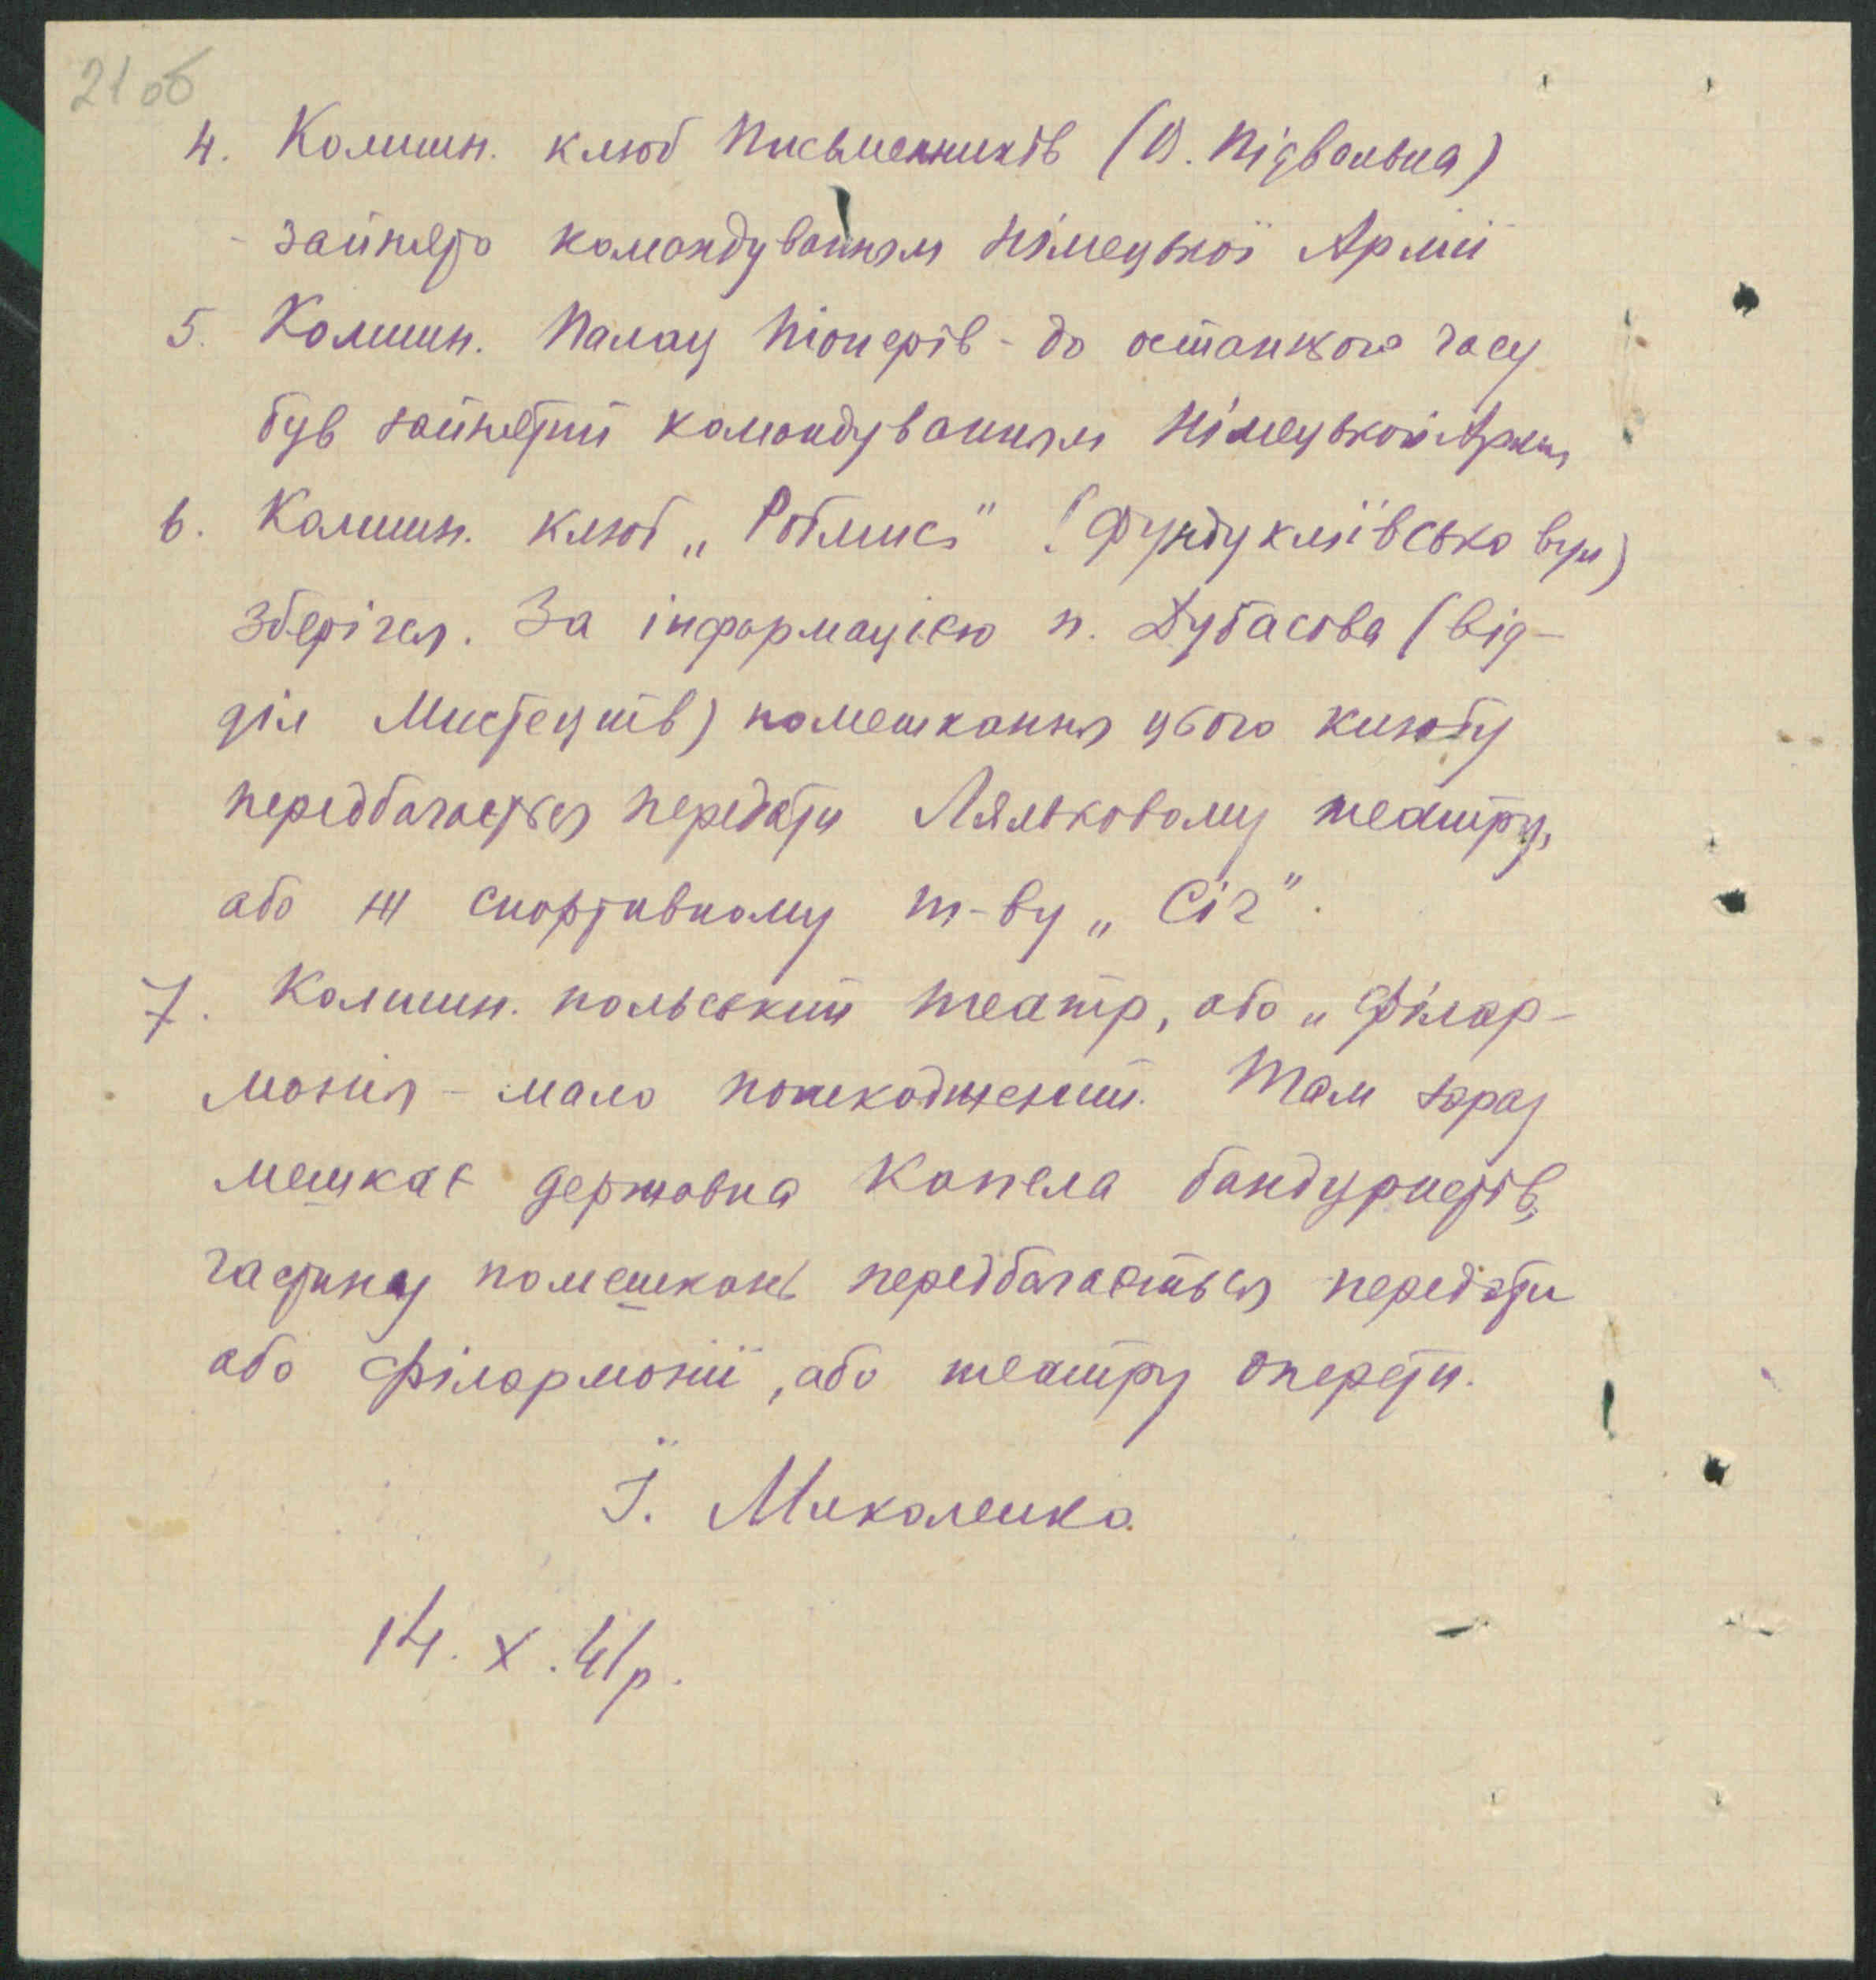 21 об
4. Колишн. клюб Письменників (В. Підвальна)
- зайнято командуванням Німецької Армії
5. Колишн. Палац Піонерів - до останнього часу
був зайнятий командуванням Німецької Армії
6. Колишн. клюб „Робмис" (Фундукліївська вул)
зберігся. За інформацією п. Дубасова (від-
діл Мистецтв) помешкання цього клюбу
передбачається передати Ляльковому театру,
або ж спортивному т-ву „Січ".
7. Колишн. польський театр, або „Філар-
монія - мало пошкоджений. Там зараз
мешкає державна Капела бандуристів,
частину помешкань передбачається передати
або філармонії, або театру оперети.
Ї. Миколенко
14. X. 41р.